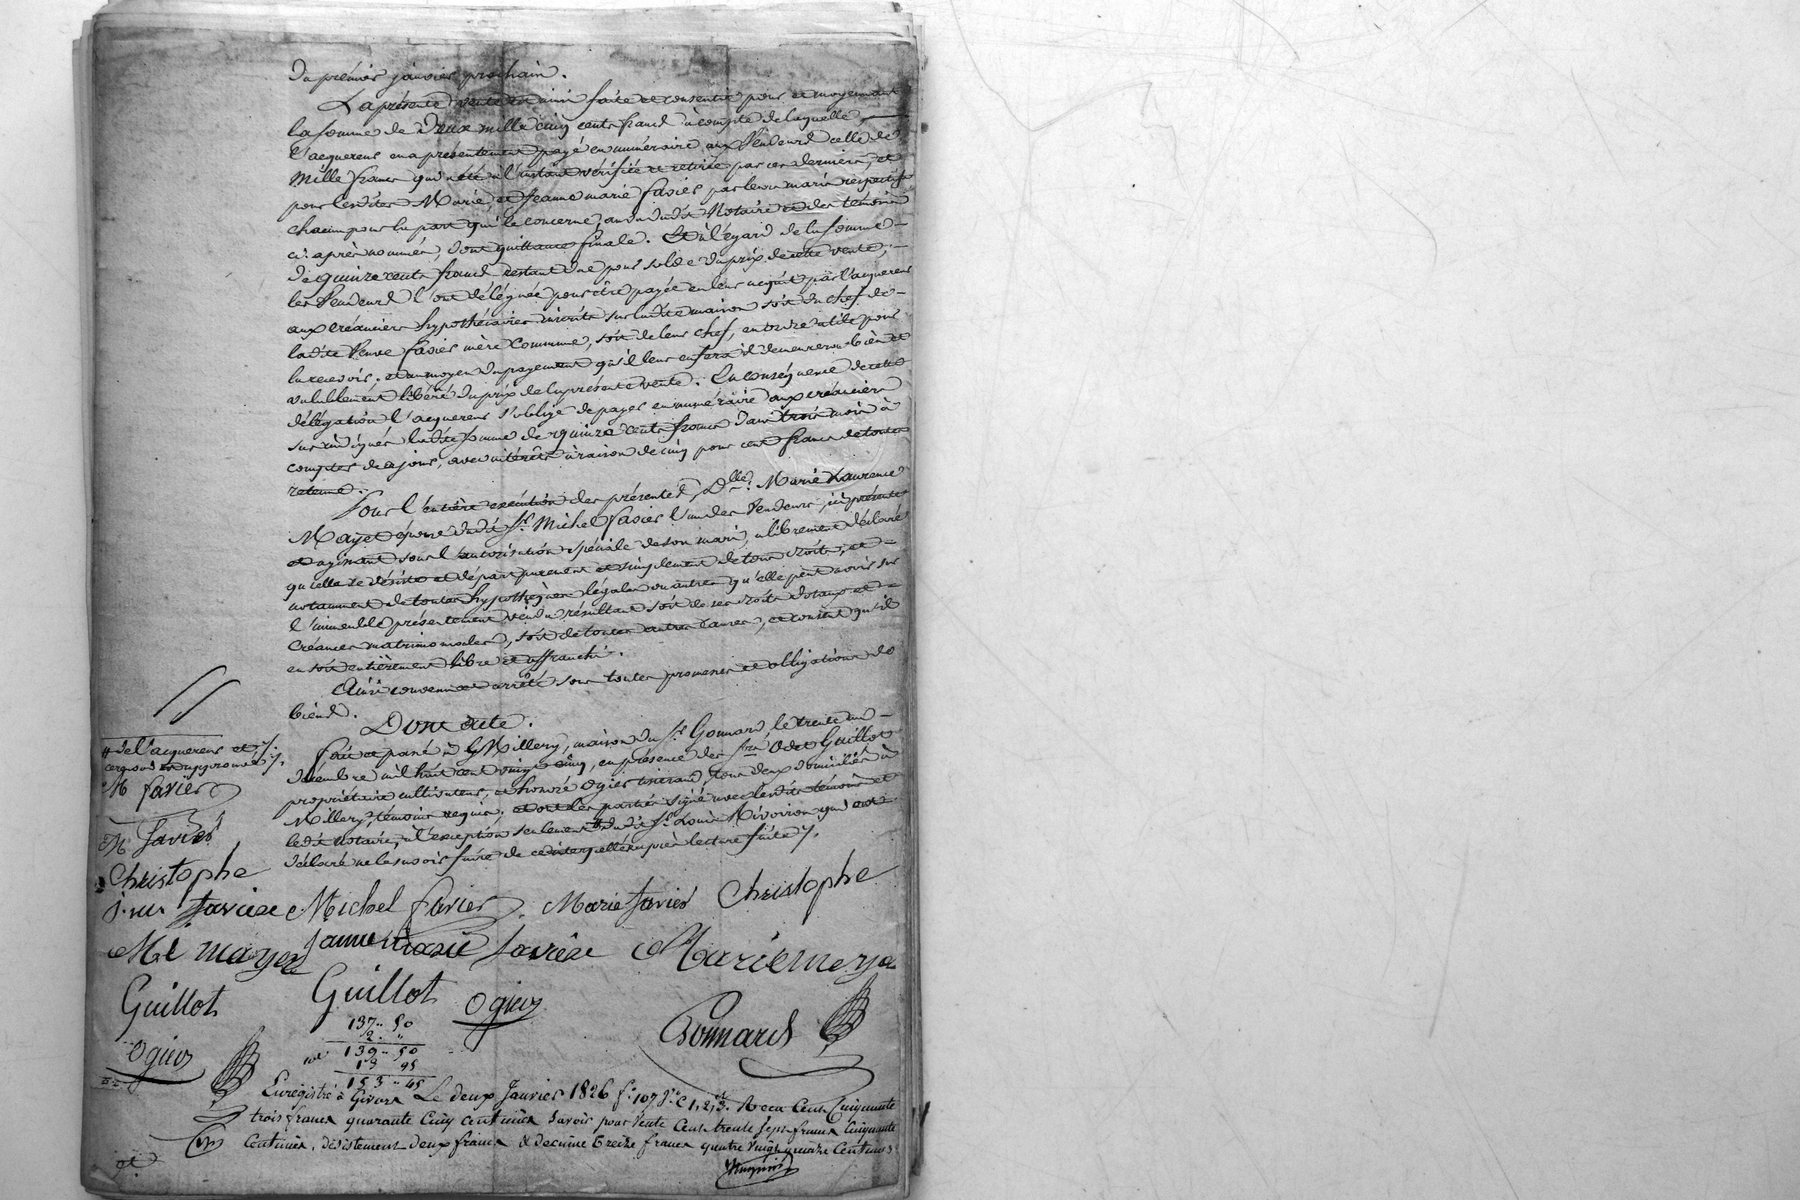 Du prémier janvier prochain.
La présente vente est ainsi faite et consentie pour et moyennant
la somme de Deux mille cinq cents francs à compte de laquelle
l'acquereur en a présentement payé en numéraire aux Vendeurs celle de
Mille francs qui a été à l'instant vérifiée et retirée par ces derniers, et
pour lesdites Marie, et Jeanne marie favier par leurs maris respectifs
chacun pour la part qui le concerne, au vu dudit Notaire et des témoins
ci-après nommés, dont quittance finale. Et à l'égard de la somme
de quinze cents francs restant due pour solde du prix de cette vente,
les Vendeurs l'ont déléguée pour être payée en leur acquit par l'acquereur
aux créanciers hypothécaires inscrits sur ladite maison soit du chef de
ladite Veuve favier mère commune, soit de leur chef, en ordre utile pour
la recevoir. et au moyen du payement qu'il leur en fera il demeurera bien et
valablement libéré du prix de la présente vente. En conséquence de cette
délégation l'acquereur s'oblige de payer en numéraire aux créanciers
sus indiqués ladite somme de quinze cents francs dans trois mois à
compter de ce jour, avec intérêts à raison de cinq pour cent francs de toutes
retenue.
Pour l'entière exécution des présentes, Dlle. Marie Laurence
Mayet épouse dudit Sr. Michel favier l'un des Vendeurs, ici présente
et agissant sous l'autorisation spéciale de son mari, a librement déclaré
qu'elle se désiste et départ purement et simplement de tous droits, et
notamment de toutes hypothèques légales ou autres qu'elle peut avoir sur
l'immeuble présentement vendu, résultant soit de ses droits dotaux et
créances matrimoniales, soit de toutes autres causes, et consent qu'il
en soit entièrement libre et affranchi.
Ainsi convenu et arrêté sous toutes promesses et obligations de
biens.
Dont acte.
fait et passé à Millery, maison du Sr. Gonnard, le trente un
décembre mil huit cent vingt cinq, en présence des srs. Odet Guillot
propriétaire cultivateur, et honoré Ogier tisserand, tous deux domiciliés à
Millery, témoins requis, et ont les parties signé avec lesdits témoins et
ledit notaire, à l'exception seulement dudit Sr. Louis Rivoiron qui a
déclaré ne le savoir faire de ce interpellé après lecture faite.
de l'acquereur et
M favier
M. favier
Christophe
j. m. favier Michel favier. Marie favier Christophe
M L mayet Jeanne marie favier Marie mayet
Guillot Guillot Ogier
137 .. 50
2 . "
139 .. 50
13 95
153 .. 45
Ogier Gonnard
Enregistré à Givors Le deux Janvier 1826 fo. 107 Vo. C 1, 2, et 3. Recu Cent Cinquante
trois francs quarante Cinq centimes Savoir pour Vente Cent trente Sept francs Cinquante
Centimes, désistement deux francs & decime treize francs quatre vingt quinze Centimes